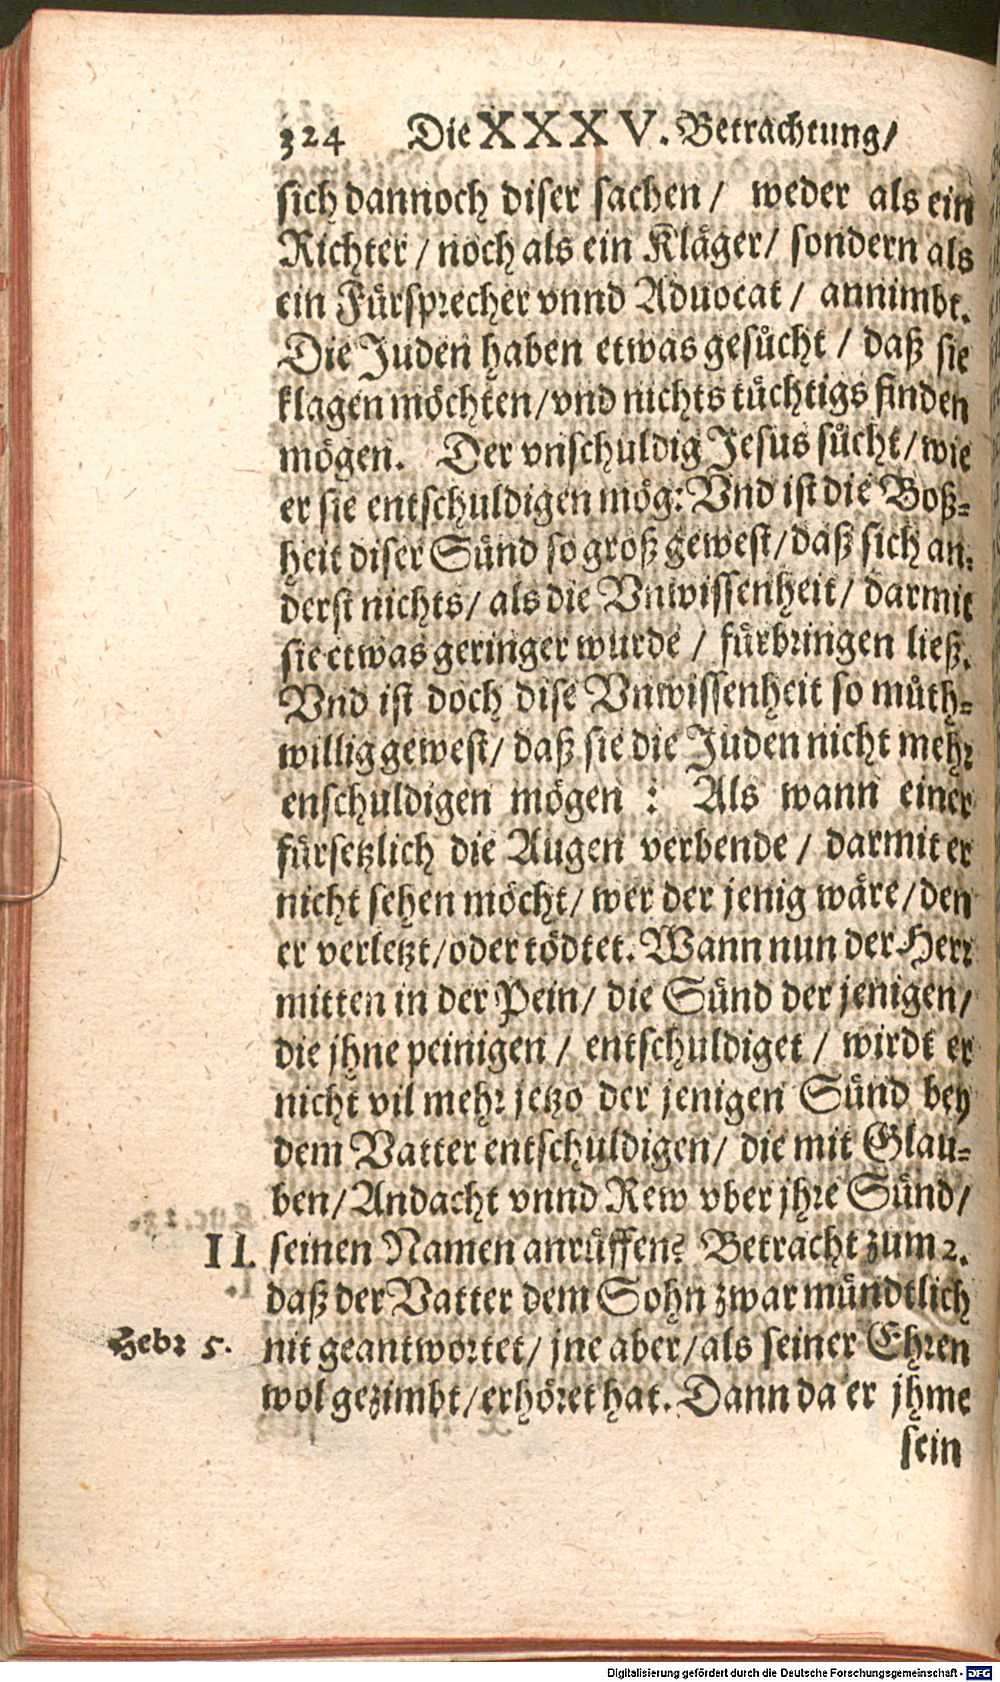 324 Die XXXV. Betrachtung/
sich dannoch diser sachen/ weder als ein
Richter/ noch als ein Kläger/ sondern als
ein Fürsprecher vnnd Aduocat/ annimbt.
Die Juden haben etwas gesůcht/ daß sie
klagen möchten/vnd nichts tüchtigs finden
mögen. Der vnschuldig Jesus sůcht/ wie
er sie entschuldigen mög: Vnd ist die Boß-
heit diser Sünd so groß gewest/ daß sich an-
derst nichts/ als die Vnwissenheit/ darmit
sie etwas geringer wurde/ fürbringen ließ.
Vnd ist doch dise Vnwissenheit so můth-
willig gewest/ daß sie die Juden nicht mehr
enschuldigen mögen: Als wann einer
fürsetzlich die Augen verbende/ darmit er
nicht sehen möcht/ wer der jenig wäre/ den
er verletzt/oder tödtet. Wann nun der Herr
mitten in der Pein/ die Sünd der jenigen/
die jhne peinigen/ entschuldiget/ wirdt er
nicht vil mehr jetzo der jenigen Sünd bey
dem Vatter entschuldigen/ die mit Glau-
ben/ Andacht vnnd Rew vber jhre Sünd/
II. seinen Namen anrüffen? Betracht zum 2.
daß der Vatter dem Sohn zwar mündtlich
Hebr 5. nit geantwortet/ jne aber/als seiner Ehren
wol gezimbt/erhöret hat. Dann da er jhme
sein
Digitalisierung gefördert durch die Deutsche Forschungsgemeinschaft - DFG